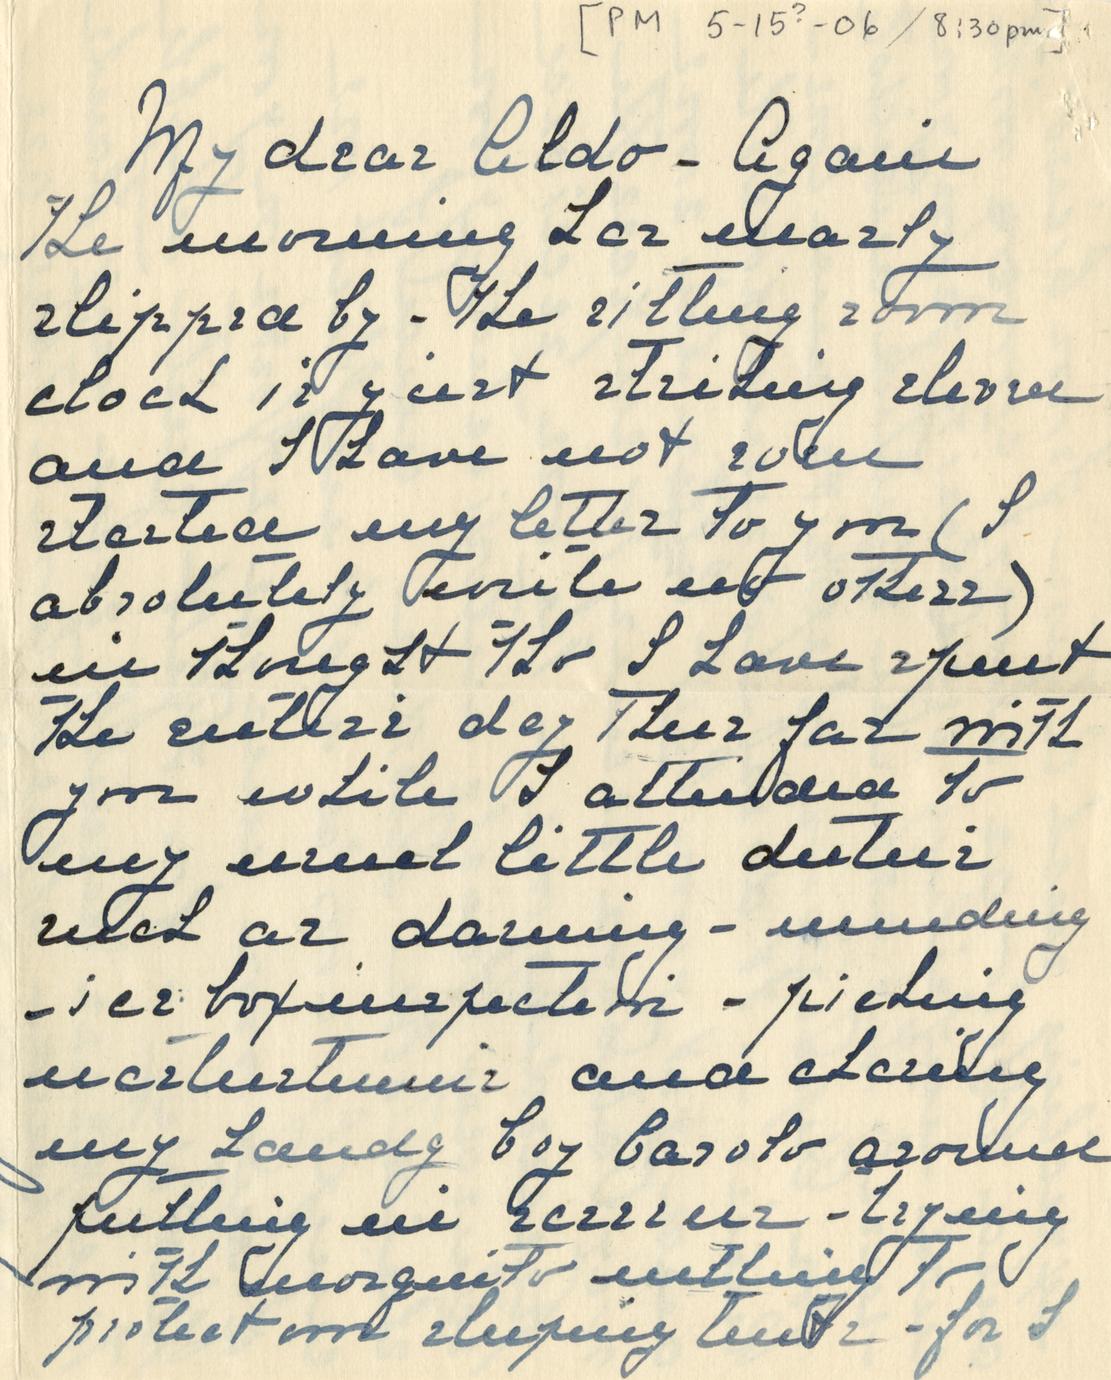 [PM 5-15?-06 / 8:30pm]
My dear Aldo - Again
the morning has nearly
slipped by - The sitting room
clock is just striking eleven
and I have not even
started my letter to you (I
absolutely write no others)
in thought tho I have spent
the entire day thus far with
you while I attended to
my usual little duties
such as darning - mending
- ice box inspection - picking
nasturtiums and chasing
my handy boy Carolo around
putting in screens - trying
with mosquito netting to
protect our sleeping tents - for I